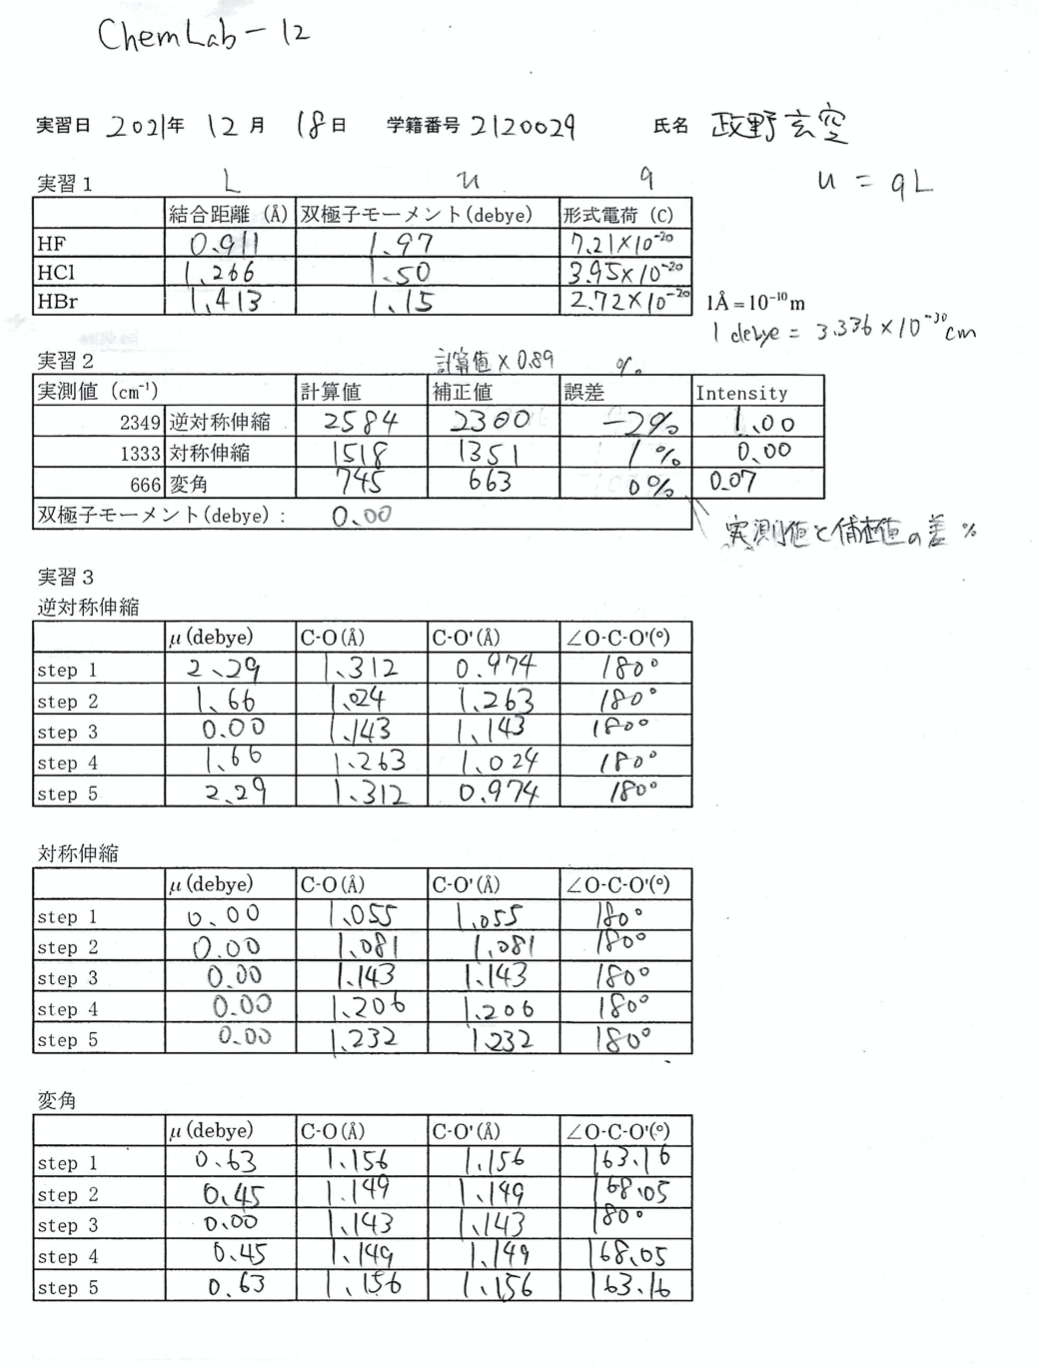 ChemLab-12
実習日 2021年 12月 18日 学籍番号 2120029 氏名 政野玄空
実習1 L u q u = qL
結合距離 (Å) 双極子モーメント(debye) 形式電荷 (C)
HF 0.911 1.97 7.21×10⁻²⁰
HCl 1.266 1.50 3.95×10⁻²⁰
HBr 1.413 1.15 2.72×10⁻²⁰
1Å=10⁻¹⁰m
1 debye = 3.336×10⁻³⁰cm
実習2 計算値×0.89 %
実測値 (cm⁻¹) 計算値 補正値 誤差 Intensity
2349 逆対称伸縮 2584 2300 -2% 1.00
1333 対称伸縮 1518 1351 1% 0.00
666 変角 745 663 0% 0.07
双極子モーメント(debye): 0.00
実測値と補正値の差 %
実習3
逆対称伸縮
μ(debye) C-O(Å) C-O'(Å) ∠O-C-O'(°)
step 1 2.29 1.312 0.974 180°
step 2 1.66 1.024 1.263 180°
step 3 0.00 1.143 1.143 180°
step 4 1.66 1.263 1.024 180°
step 5 2.29 1.312 0.974 180°
対称伸縮
μ(debye) C-O(Å) C-O'(Å) ∠O-C-O'(°)
step 1 0.00 1.055 1.055 180°
step 2 0.00 1.081 1.081 180°
step 3 0.00 1.143 1.143 180°
step 4 0.00 1.206 1.206 180°
step 5 0.00 1.232 1.232 180°
変角
μ(debye) C-O(Å) C-O'(Å) ∠O-C-O'(°)
step 1 0.63 1.156 1.156 163.16
step 2 0.45 1.149 1.149 168.05
step 3 0.00 1.143 1.143 180°
step 4 0.45 1.149 1.149 168.05
step 5 0.63 1.156 1.156 163.16